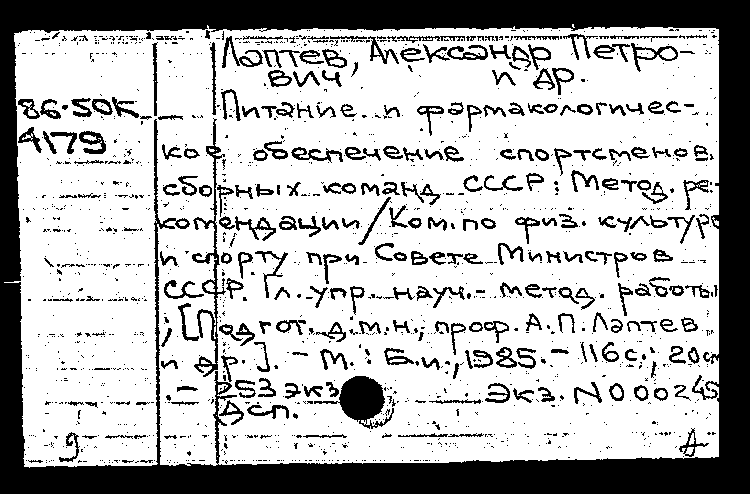 Лаптев, Александр Петро-
вич и др.
86-50К
4179
Питание и фармакологичес-
кое обеспечение спортсменов
сборных команд СССР: Метод. ре-
комендации / Ком. по физ. культуре
и спорту при Совете Министров
СССР. Гл. упр. науч.- метод. работы
; [Подгот. д.м.н., проф. А.П. Лаптев
и др.]. - М.: Б.и., 1985. - 116 с.; 20см
. - 253 экз. Экз. N 000245
Дсп.
9 А